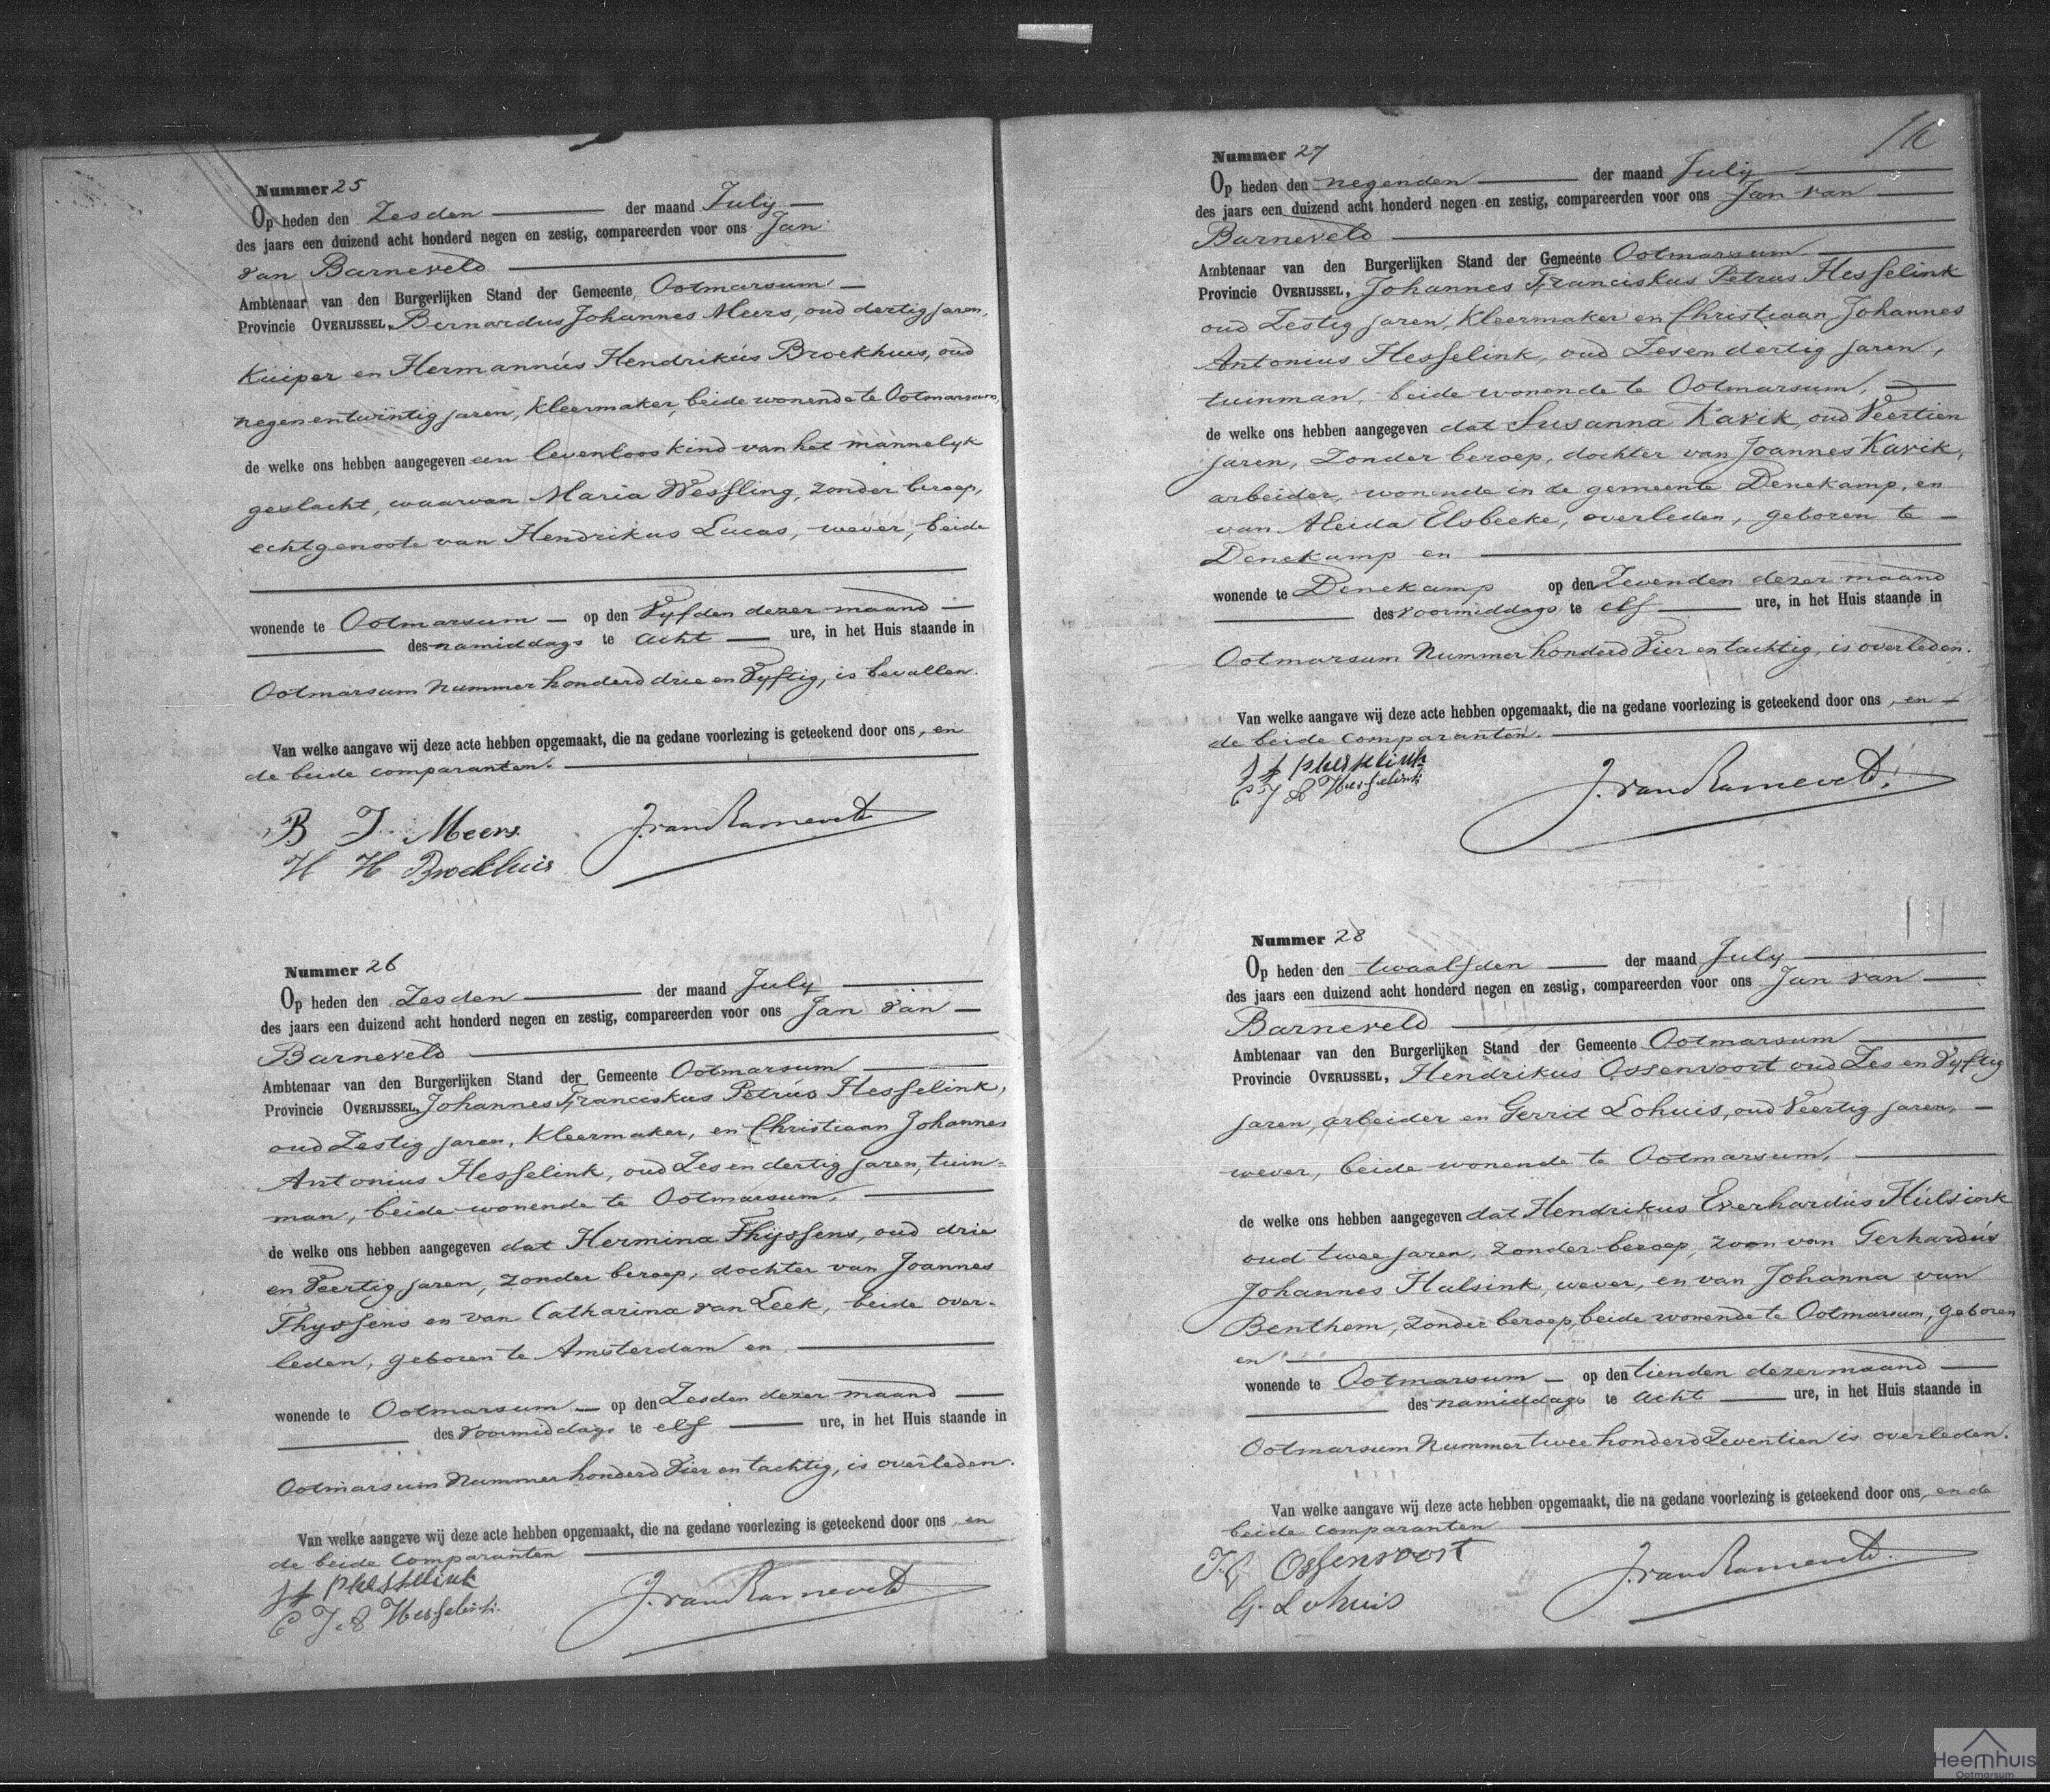 Nummer 25
Op heden den Zesden der maand July
des jaars een duizend acht honderd negen en zestig, compareerden voor ons Jan
van Barneveld
Ambtenaar van den Burgerlijken Stand der Gemeente Ootmarsum
Provincie OVERIJSSEL, Bernardus Johannes Meers, oud dertig jaren,
Kuiper en Hermannús Hendrikús Broekhuis, oud
negen en twintig jaren, Kleermaker, beide wonende te Ootmarsum,
de welke ons hebben aangegeven een levenloos kind van het mannelyk
geslacht, waarvan Maria Wessling, zonder beroep,
echtgenoote van Hendrikus Lucas, wever, beide
wonende te Ootmarsum op den Vyfden dezer maand
des namiddags te acht ure, in het Huis staande in
Ootmarsum Nummer honderd drie en Vyftig, is bevallen.
Van welke aangave wij deze acte hebben opgemaakt, die na gedane voorlezing is geteekend door ons, en
de beide comparanten.
B J Meers J. van Barneveld
H H Broekhuis
Nummer 26
Op heden den Zesden der maand July
des jaars een duizend acht honderd negen en zestig, compareerden voor ons Jan van
Barneveld
Ambtenaar van den Burgerlijken Stand der Gemeente Ootmarsum
Provincie OVERIJSSEL, Johannes Franciskus Petrús Hesselink,
oud Zestig jaren, Kleermaker, en Christiaan Johannes
Antonius Hesselink, oud Zes en dertig jaren, tuin=
man, beide wonende te Ootmarsum.
de welke ons hebben aangegeven dat Hermina Thyssens, oud drie
en Veertig jaren, zonder beroep, dochter van Joannes
Thyssens en van Catharina van Leek, beide over-
leden, geboren te Amsterdam en
wonende te Ootmarsum op den Zesden dezer maand
des voormiddags te elf ure, in het Huis staande in
Ootmarsum Nummer honderd Vier en tachtig, is overleden.
Van welke aangave wij deze acte hebben opgemaakt, die na gedane voorlezing is geteekend door ons en
de beide Comparanten
J f p hesselink J. van Barneveld
C J A Hesselink
16
Nummer 27
Op heden den negenden der maand July
des jaars een duizend acht honderd negen en zestig, compareerden voor ons Jan van
Barneveld
Ambtenaar van den Burgerlijken Stand der Gemeente Ootmarsum
Provincie OVERIJSSEL, Johannes Franciskus Petrus Hesselink
oud Zestig jaren, Kleermaker en Christiaan Johannes
Antonius Hesselink, oud Zes en dertig jaren,
tuinman, beide wonende te Ootmarsum,
de welke ons hebben aangegeven dat Susanna Kavik, oud Veertien
jaren, Zonder beroep, dochter van Joannes Kavik,
arbeider, wonende in de gemeente Denekamp, en
van Aleida Elsbeeke, overleden, geboren te
Denekamp en
wonende te Denekamp op den Zevenden dezer maand
des voormiddags te elf ure, in het Huis staande in
Ootmarsum Nummer honderd Vier en tachtig, is overleden.
Van welke aangave wij deze acte hebben opgemaakt, die na gedane voorlezing is geteekend door ons, en
de beide comparanten.
J f p hesselink J. van Barneveld.
C J A Hesselink
Nummer 28
Op heden den twaalfden der maand July
des jaars een duizend acht honderd negen en zestig, compareerden voor ons Jan van
Barneveld
Ambtenaar van den Burgerlijken Stand der Gemeente Ootmarsum
Provincie OVERIJSSEL, Hendrikus Ossenvoort oud Zes en Vyftig
jaren, arbeider en Gerrit Lohuis, oud Veertig jaren,
wever, beide wonende te Ootmarsum,
de welke ons hebben aangegeven dat Hendrikus Everhardús Húlsink
oud twee jaren, zonder beroep, zoon van Gerhardús
Johannes Hulsink, wever, en van Johanna van
Benthem, zonder beroep, beide wonende te Ootmarsum, geboren
en
wonende te Ootmarsum op den tienden dezer maand
des namiddags te acht ure, in het Huis staande in
Ootmarsum Nummer twee honderd Zeventien is overleden.
Van welke aangave wij deze acte hebben opgemaakt, die na gedane voorlezing is geteekend door ons, en de
beide comparanten
Ossenvoort J. van Barneveld.
G. Lohuis
Heemhuis
Ootmarsum